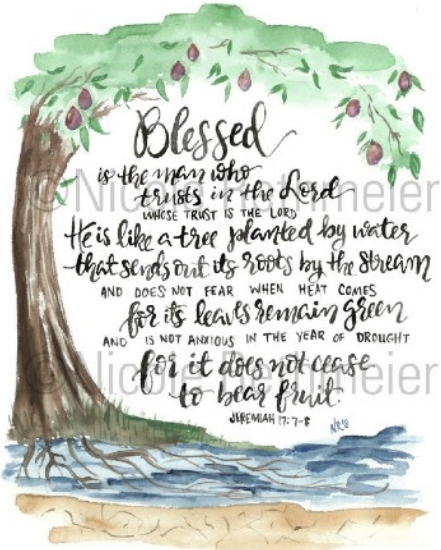 Blessed
is the man who
trusts in the Lord
WHOSE TRUST IS THE LORD
He is like a tree planted by water
that sends out its roots by the stream
AND DOES NOT FEAR WHEN HEAT COMES
for its leaves remain green
AND IS NOT ANXIOUS IN THE YEAR OF DROUGHT
for it does not cease
to bear fruit.
JEREMIAH 17:7-8